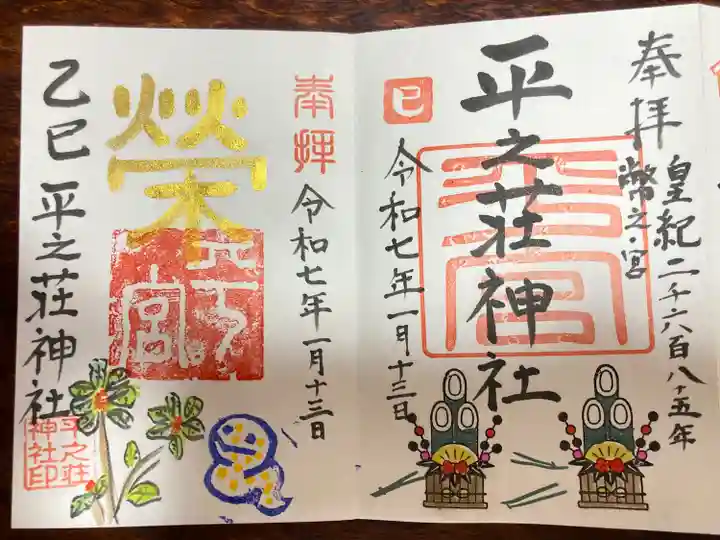 奉拝
皇紀二千六百八十五年
幣之宮
平之荘神社
巳
令和七年一月十三日
奉拝
令和七年一月十三日
榮
乙巳 平之荘神社
平之荘
神社印